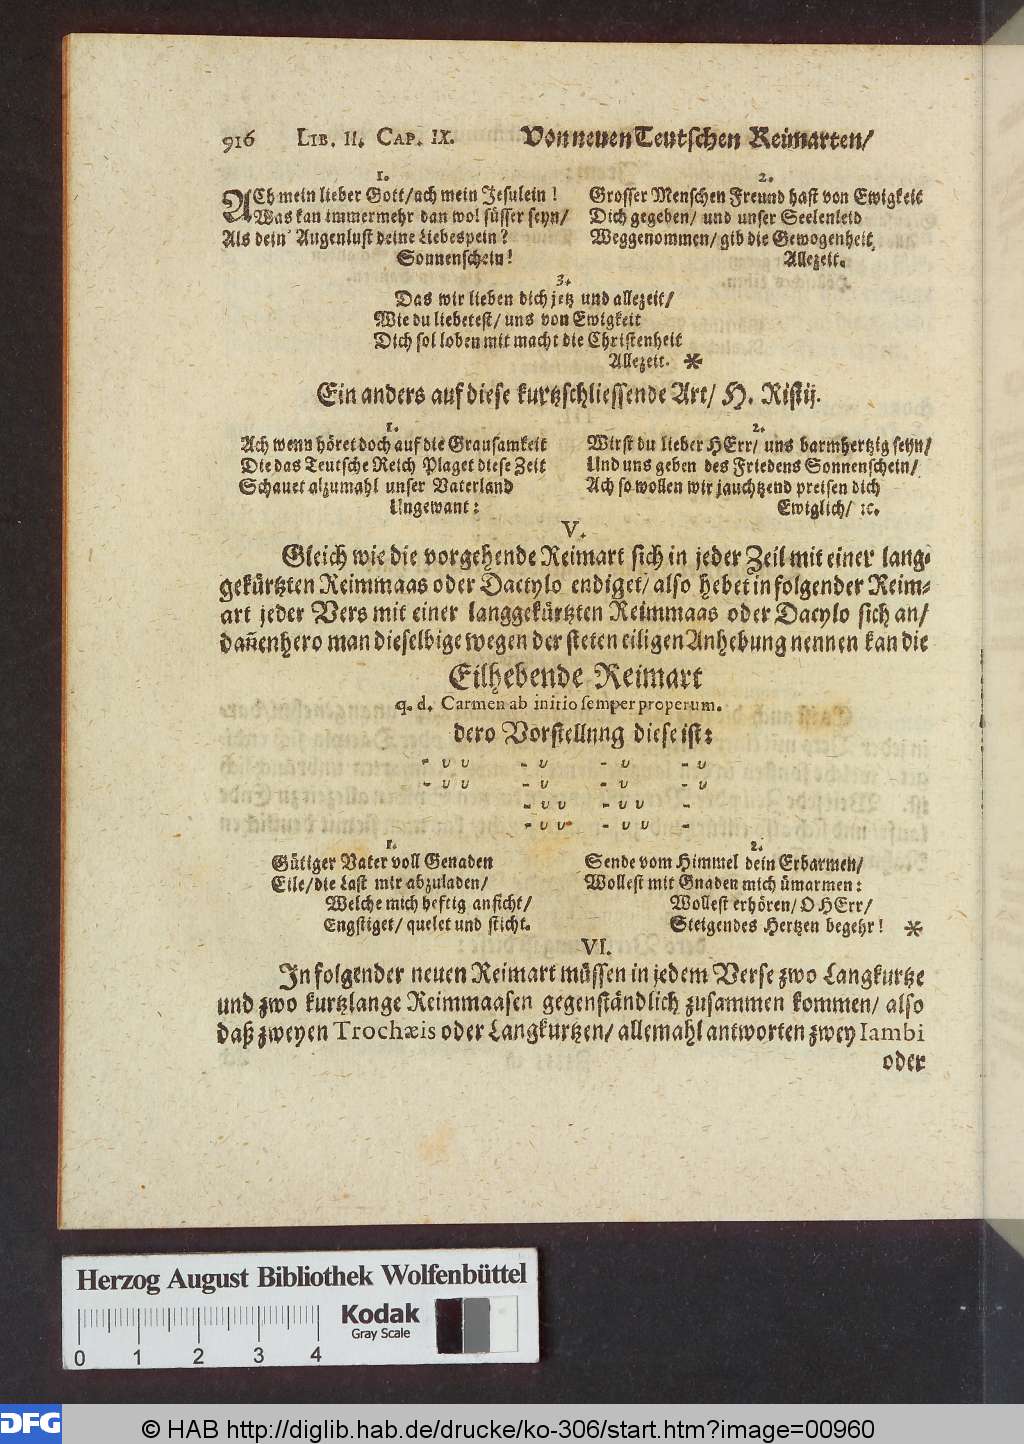 916 LIB. II. CAP. IX. Von neuen Teutschen Reimarten/
1.
ACh mein lieber Gott/ach mein Jesulein!
Was kan immermehr dan wol süsser seyn/
Als dein' Augenlust deine Liebespein?
Sonnenschein!
2.
Grosser Menschen Freund hast von Ewigkeit
Dich gegeben/ und unser Seelenleid
Weggenommen/ gib die Gewogenheit
Allezeit.
3.
Das wir lieben dich jetz und allezeit/
Wie du liebetest/ uns von Ewigkeit
Dich sol loben mit macht die Christenheit
Allezeit. *
Ein anders auf diese kurtzschliessende Art/ H. Ristij.
1.
Ach wenn höret doch auf die Grausamkeit
Die das Teutsche Reich Plaget diese Zeit
Schauet alzumahl unser Vaterland
Ungewant:
2.
Wirst du lieber HErr/ uns barmhertzig seyn/
Und uns geben des Friedens Sonnenschein/
Ach so wollen wir jauchtzend preisen dich
Ewiglich/ ꝛc.
V.
Gleich wie die vorgehende Reimart sich in jeder Zeil mit einer lang-
gekürtzten Reimmaas oder Dactylo endiget/ also hebet in folgender Reim-
art jeder Vers mit einer langgekürtzten Reimmaas oder Dacylo sich an/
dañenhero man dieselbige wegen der steten eiligen Anhebung nennen kan die
Eilhebende Reimart
q. d. Carmen ab initio semper properum.
dero Vorstellung diese ist:
- υ υ - υ - υ - υ
- υ υ - υ - υ - υ
- υ υ - υ υ -
- υ υ - υ υ -
1.
Gütiger Vater voll Genaden
Eile/die Last mir abzuladen/
Welche mich heftig ansicht/
Engstiget/ quelet und sticht.
2.
Sende vom Himmel dein Erbarmen/
Wollest mit Gnaden mich ümarmen:
Wollest erhören/ O HErr/
Steigendes Hertzen begehr! *
VI.
In folgender neuen Reimart müssen in jedem Verse zwo Langkurtze
und zwo kurtzlange Reimmaasen gegenständlich zusammen kommen/ also
daß zweyen Trochæis oder Langkurtzen/ allemahl antworten zwey Iambi
oder
Herzog August Bibliothek Wolfenbüttel
Kodak
Gray Scale
0 1 2 3 4
DFG © HAB http://diglib.hab.de/drucke/ko-306/start.htm?image=00960